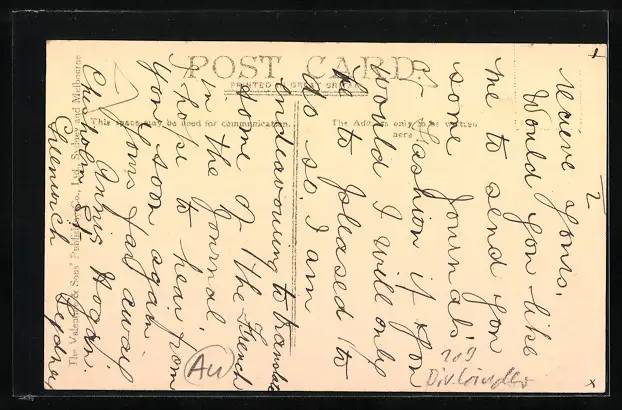 POST CARD.
PRINTED IN GREAT BRITAIN
This space may be used for communication.
The Address only to be written
here
The Valentine & Sons' Publishing Co., Ltd., Sydney and Melbourne
2
recieve yours.
Would you like
me to send you
some Journals
of Fashion if you
would I will only
be to pleased to
do so. I am
endeavouring to translate
some of the French
in the Journal
I hope to hear from
you soon again
Yours far away
Hogan.
Chisholm St
Sydney
AU